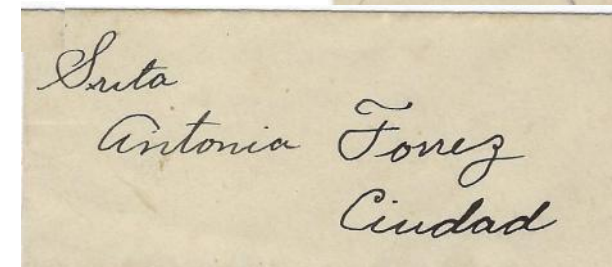 Srita
Antonia Torrez
Ciudad